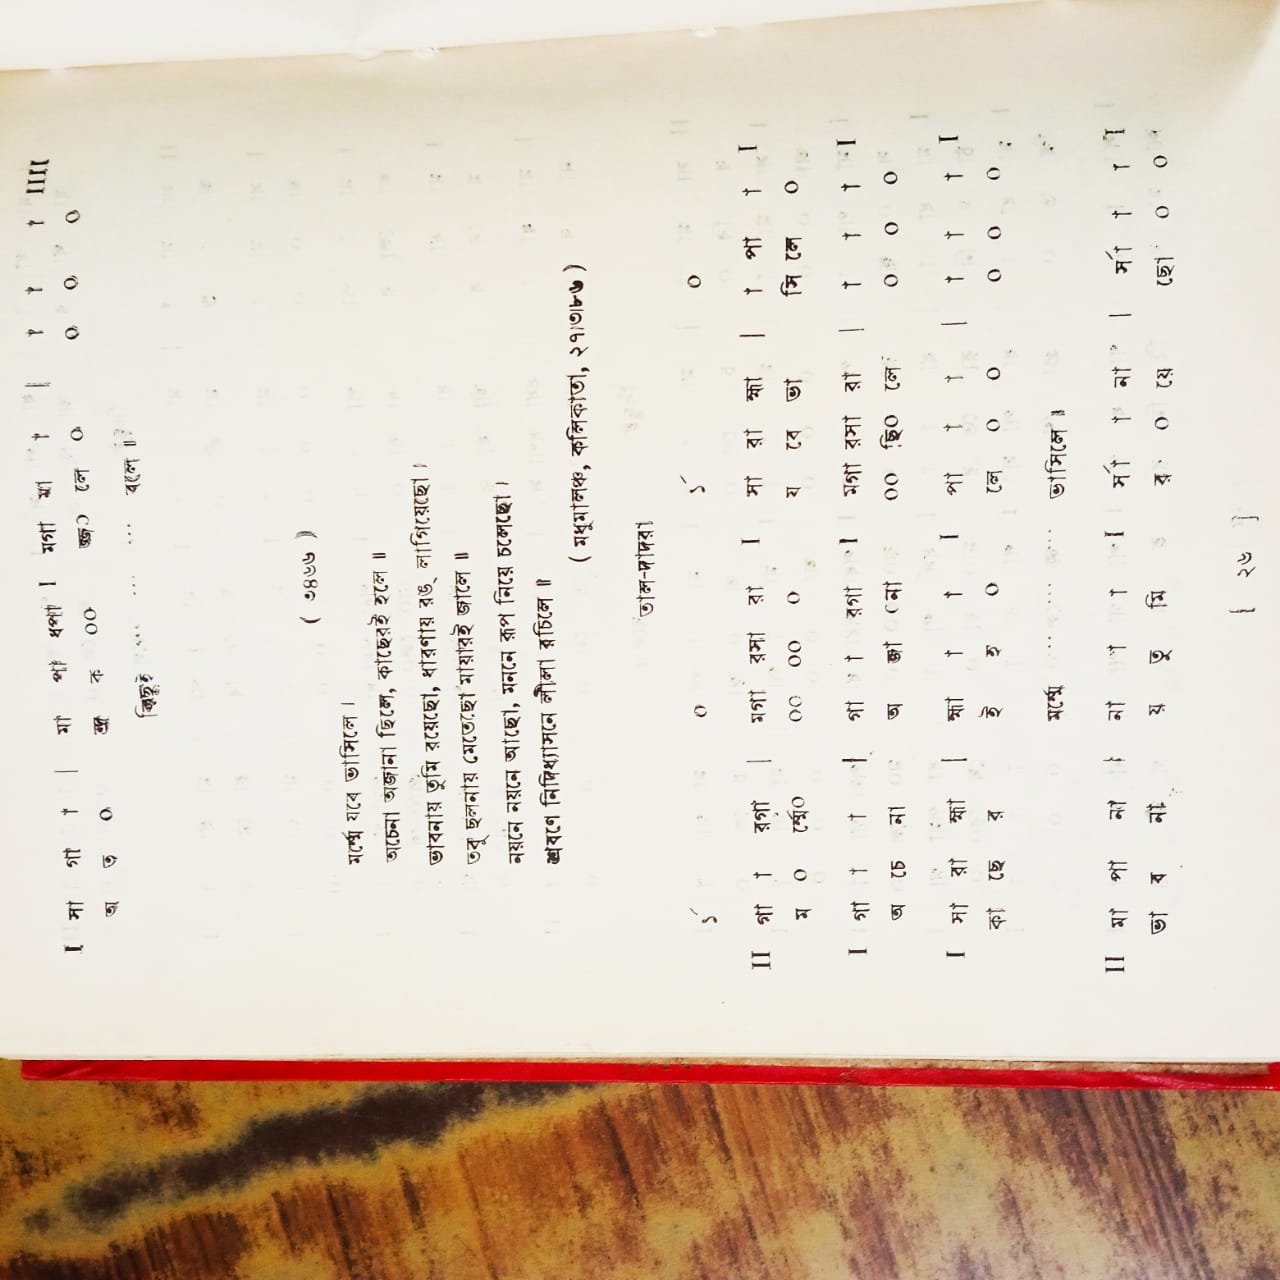 I সা গা া | মা পা ধপা I মগা মা া | া া া IIII
অ ত ০ ল্প ক ০০ জ্ঞ০ লে ০ ০ ০ ০
কিছুই ... ... ... বলে ॥
( ৩৪৬৬ )
মর্ম্মে যবে ভাসিলে ।
অচেনা অজানা ছিলে, কাছেরই হলে ॥
ভাবনায় তুমি রয়েছো, ধারণায় রঙ্ লাগিয়েছো ।
তবু ছলনায় মেতেছো মায়ারই জালে ॥
নয়নে নয়নে আছো, মননে রূপ নিয়ে চলেছো ।
শ্রবণে নিদিধ্যাসনে লীলা রচিলে ॥
( মধুমালঞ্চ, কলিকাতা, ২৭।৩।৮৬ )
তাল-দাদরা
১´ ০ ১´ ০
II গা া রগা | মগা রসা রা I সা রা হ্মা | া পা া I
ম ০ র্ম্মে০ ০০ ০০ ০ য বে ভা সি লে ০
I গা া া | গা া রগা I মগা রসা রা | া া া I
অ চে না অ জা ০না ০০ ছি০ লে ০ ০ ০
I সা রা হ্মা | হ্মা া া I পা া া | া া া I
কা ছে র ই হ ০ লে ০ ০ ০ ০ ০
মর্ম্মে ... ... ... ভাসিলে ॥
II মা পা না | না া া I র্সা া না | র্সা া া I
ভা ব না য় তু মি র ০ য়ে ছো ০ ০
[ ২৬ ]